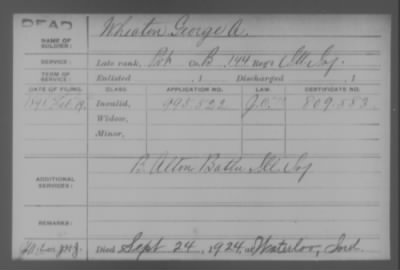 DEAD
NAME OF SOLDIER: Wheaton George A.
SERVICE: Late rank, Pvt Co. B, 144 Reg't Ill Inf
TERM OF SERVICE: Enlisted , 1 Discharged , 1
DATE OF FILING. CLASS. APPLICATION NO. LAW. CERTIFICATE NO.
Invalid, 998.522 809.583
Widow,
Minor,
ADDITIONAL SERVICES: B. Alton Battn Ill Inf
REMARKS:
Died Sept 24, 1924, at Waterloo, Ind.